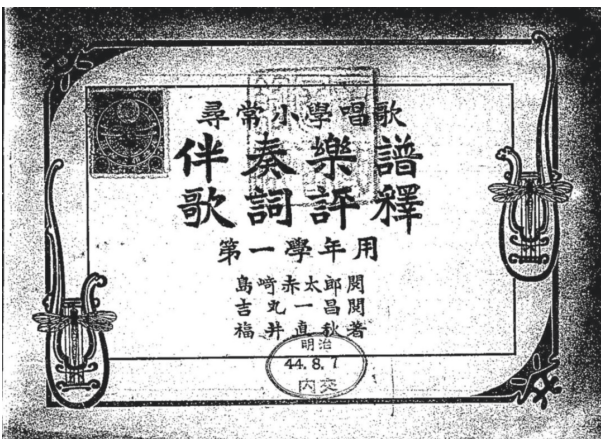 尋常小學唱歌
伴奏樂譜
歌詞評釋
第一學年用
島崎赤太郎閲
吉丸一昌閲
福井直秋著
明治
44.8.7
内交